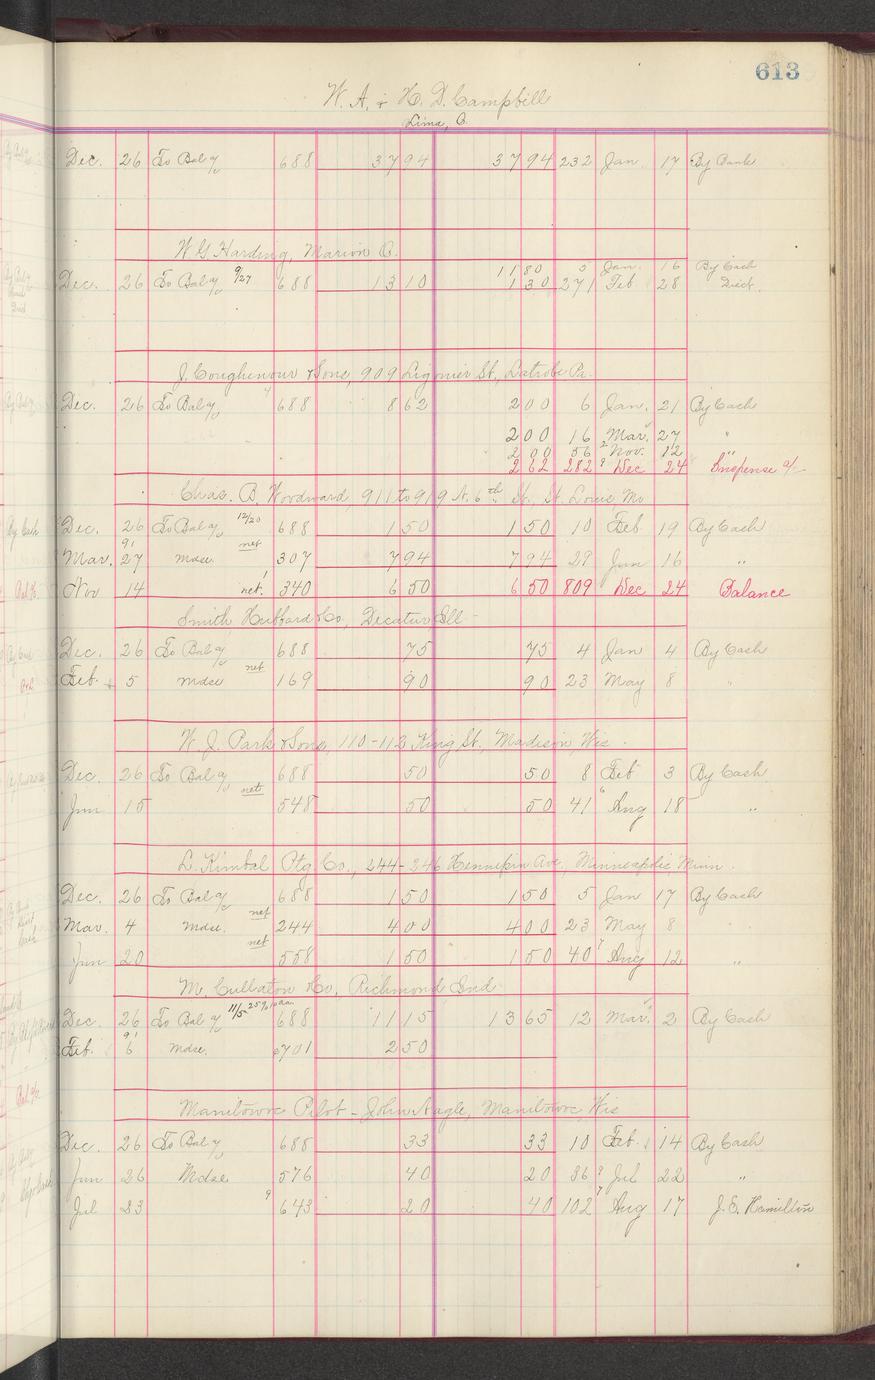 613
W. A. & H. D. Campbill
Lima, O.
Dec. 26 To Bal a/c 688 37 94 37 94 232 Jan 17 By Bank
W. G. Harding, Marion O.
11 80 5 Jan. 16 By Cash
Dec. 26 To Bal a/c 9/27 688 13 10 1 30 271 Feb 28 Disct.
J. Coughenour & Sons, 909 Ligonier St., Latrobe Pa.
Dec. 26 To Bal a/c 688 8 62 2 00 6 Jan. 21 By Cash
2 00 16 Mar. 27 "
2 00 56 Nov. 12 "
2 62 282 Dec 24 Suspense a/c
Chas. B. Woodward 911 to 919 N. 6th St., St. Louis, Mo
Dec. 26 To Bal a/c 12/20 688 1 50 1 50 10 Feb 19 By Cash
91
Mar. 27 mdse. net 307 7 94 7 94 29 Jun 16 "
Nov 14 net. 340 6 50 6 50 809 Dec 24 Balance
Smith Hubbard & Co, Decatur Ill
Dec. 26 To Bal a/c 688 75 75 4 Jan 4 By Cash
Feb. 5 mdse net 169 90 90 23 May 8 "
W. J. Park & Sons, 110-112 King St., Madison, Wis.
Dec. 26 To Bal a/c 688 50 50 8 Feb 3 By Cash
Jun 15 net 548 50 50 41 Aug 18 "
L. Kimbal Ptg Co., 244-246 Hennepin Ave, Minneapolis Minn
Dec. 26 To Bal a/c 688 1 50 1 50 5 Jan 17 By Cash
Mar. 4 mdse. net 244 4 00 4 00 23 May 8 "
Jun 20 net 558 1 50 1 50 40 Aug 12 "
M. Cullaton & Co, Richmond Ind
Dec. 26 To Bal a/c 11/5 25% 688 11 15 13 65 12 Mar. 2 By Cash
91
Feb. 6 mdse. 701 2 50
Manitowoc Pilot - John Nagle, Manitowoc, Wis
Dec. 26 To Bal a/c 688 33 33 10 Feb. 14 By Cash
Jun 26 Mdse 576 40 20 36 Jul 22 "
Jul 23 643 20 40 102 Aug 17 J. E. Hamilton